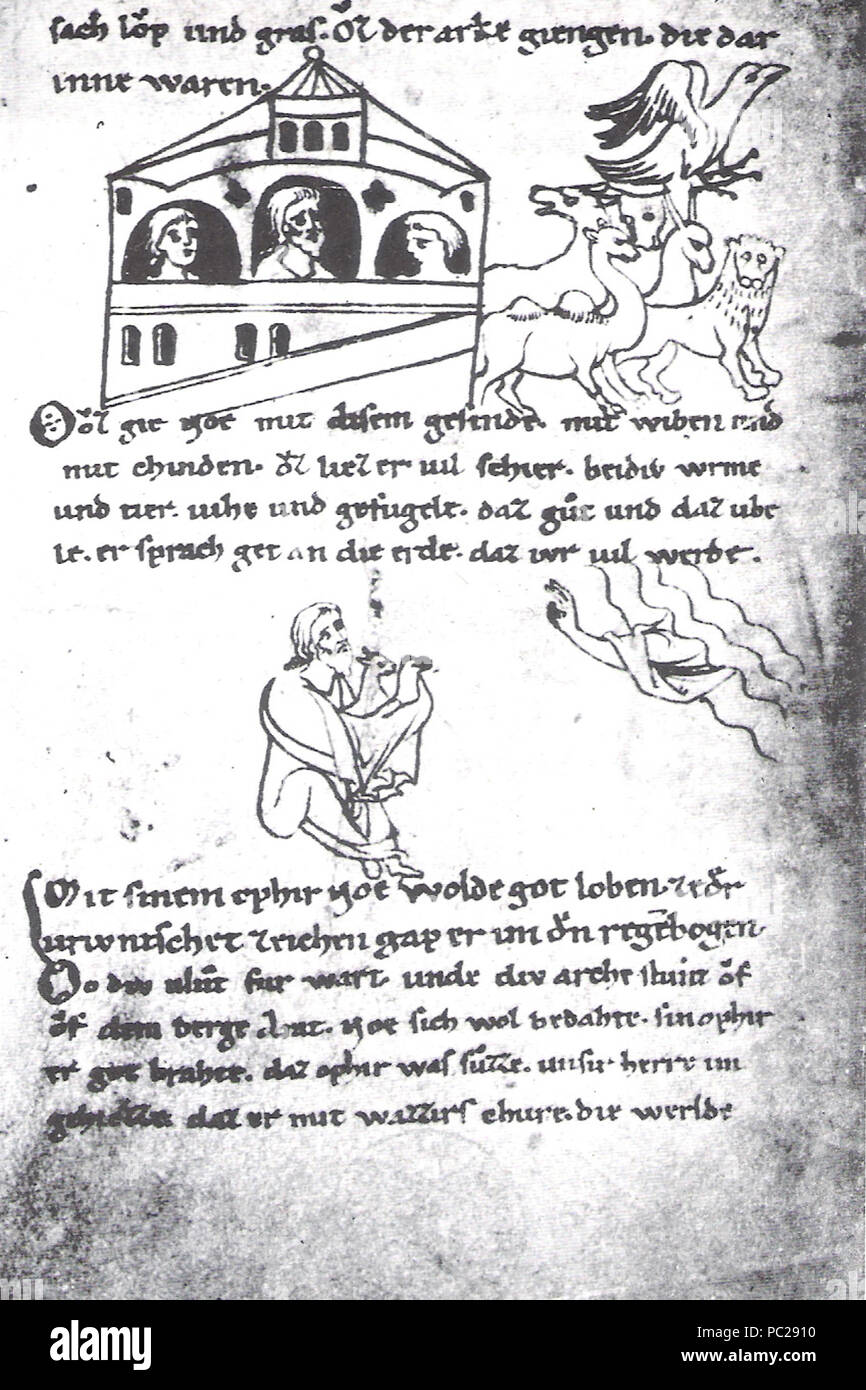 sach lǒp und gras. Ǒz der arke giengen. die dar
inne waren.
Ǒz gie Noe mit disem gesinde. mit wiben und
mit chinden. ǒz liez er uil schier. beidiv wrme
und tier. uihe und gefugele. daz gůt und daz ube
le. er sprach get an die erde. daz iwr uil werde.
Mit sinem ophir Noe wolde got loben. ze der
urwntschet zeichen gap er im den regēbogen.
Do div vlůt fur wart. unde div arche stuint ǒf
ǒf dem berge Noe sich wol bedahte. sin ophir
er got brahte. daz ophir was sůzze. unsir herre im
gehiezze daz er mit wazzirs chure. die werlde
alamy
Image ID: PC2910
www.alamy.com